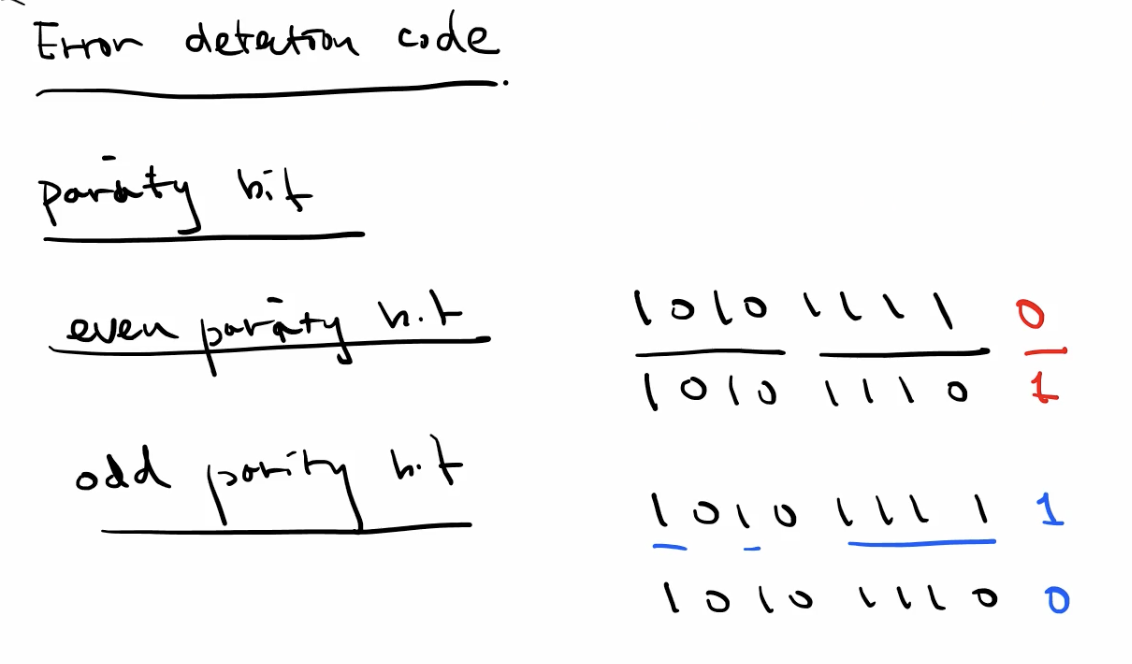 Error detection code.
parity bit
even parity bit
1010 1111 0
1010 1110 1
odd parity bit
1010 1111 1
1010 1110 0